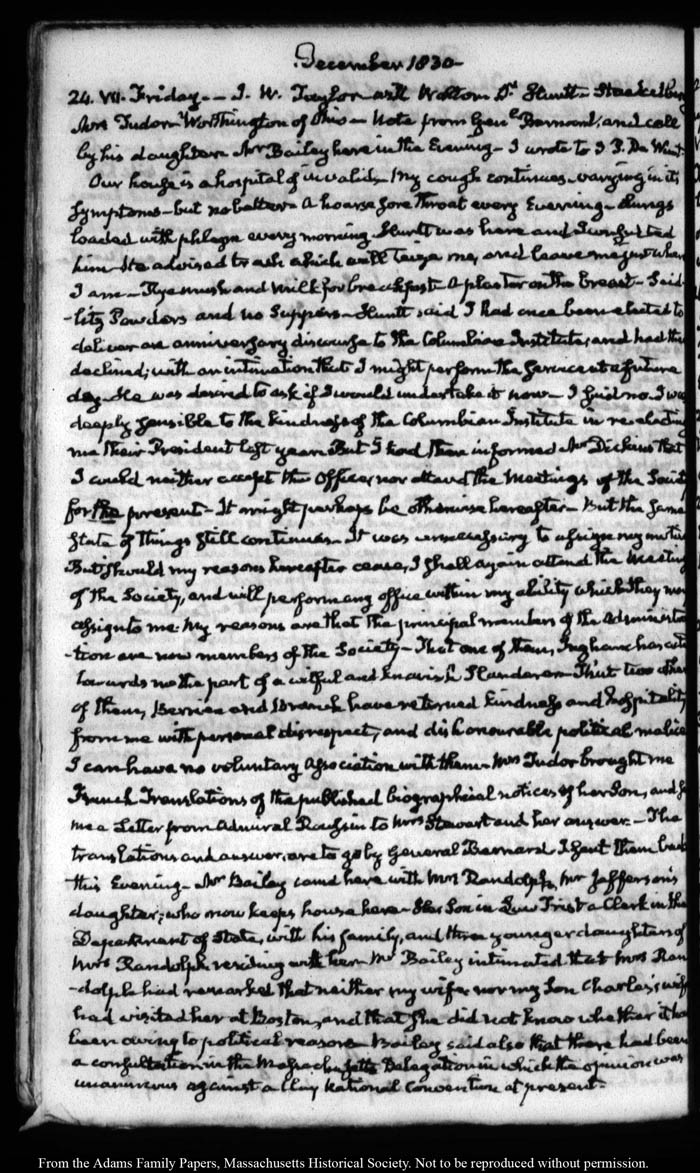 December 1830-
24. VII. Friday.- J. W. Taylor Watson Dr. Huntt-
Mrs Tudor Worthington of Ohio- Note from Genl. Bernard, and call
by his daughter Mr Bailey here in the Evening- I wrote to J P. De Wint
Our house is a hospital of invalids- My cough continues varying in its
symptoms- but no better- A hoarse sore throat every Evening- lungs
loaded with phlegm every morning Huntt was here and I consulted
him- He advised which will teize me, and leave me just where
I am- Rye mush and milk for breakfast- A plaster on the breast- Seid
-litz Powders and no suppers- Huntt said I had once been elected to
deliver an anniversary discourse to the Columbian Institute, and had then
declined; with an intimation that I might perform the service at a future
day. He was desired to ask if I would undertake it now- I said no. I was
deeply sensible to the kindness of the Columbian Institute in re-electing
me their President last year. But I had then informed Mr Dickins that
I could neither accept the Office, nor attend the Meetings of the Society
for the present- It might perhaps be otherwise hereafter- But the same
state of things still continues- It was unnecessary to assign my motives
But should my reasons hereafter cease, I shall again attend the Meetings
of the Society, and will perform any office within my ability which they may
assign to me. My reasons are that the principal members of the Administra
-tion are now members of the Society- That one of them, Ingham has acted
towards me the part of a wilful and knavish slanderer- That two others
of them, Berrien and Branch have returned kindness and hospitality
from me with personal disrespect, and dishonourable political malice
I can have no voluntary association with them- Mrs Tudor brought me
French Translations of the published biographical notices of her Son, and
me a Letter from Admiral to Mrs Stewart and her answer- The
translations and answer, are to go by General Bernard. I sent them back
this Evening- Mr Bailey came here with Mrs Randolph, Mr Jefferson's
daughter; who now keeps house here- Her Son in Law Trist a Clerk in the
Department of State, with his family, and three younger daughters of
Mrs Randolph residing with her- Mr Bailey intimated that Mrs Ran
-dolph had remarked that neither my wife nor my Son Charles's wife
had visited her at Boston, and that she did not know whether it had
been owing to political reasons- Bailey said also that there had been
a consultation in the Massachusetts Delegation in which the opinion was
unanimous against a Clay National Convention at present-
From the Adams Family Papers, Massachusetts Historical Society. Not to be reproduced without permission.